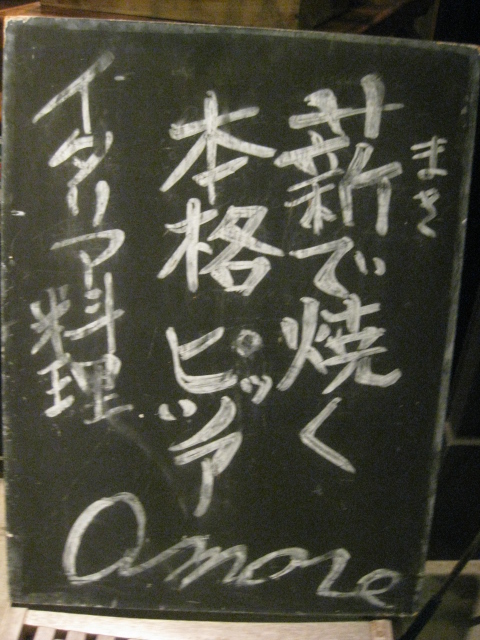 まき
薪で焼く
本格ピッツア
イタリア料理
Amore